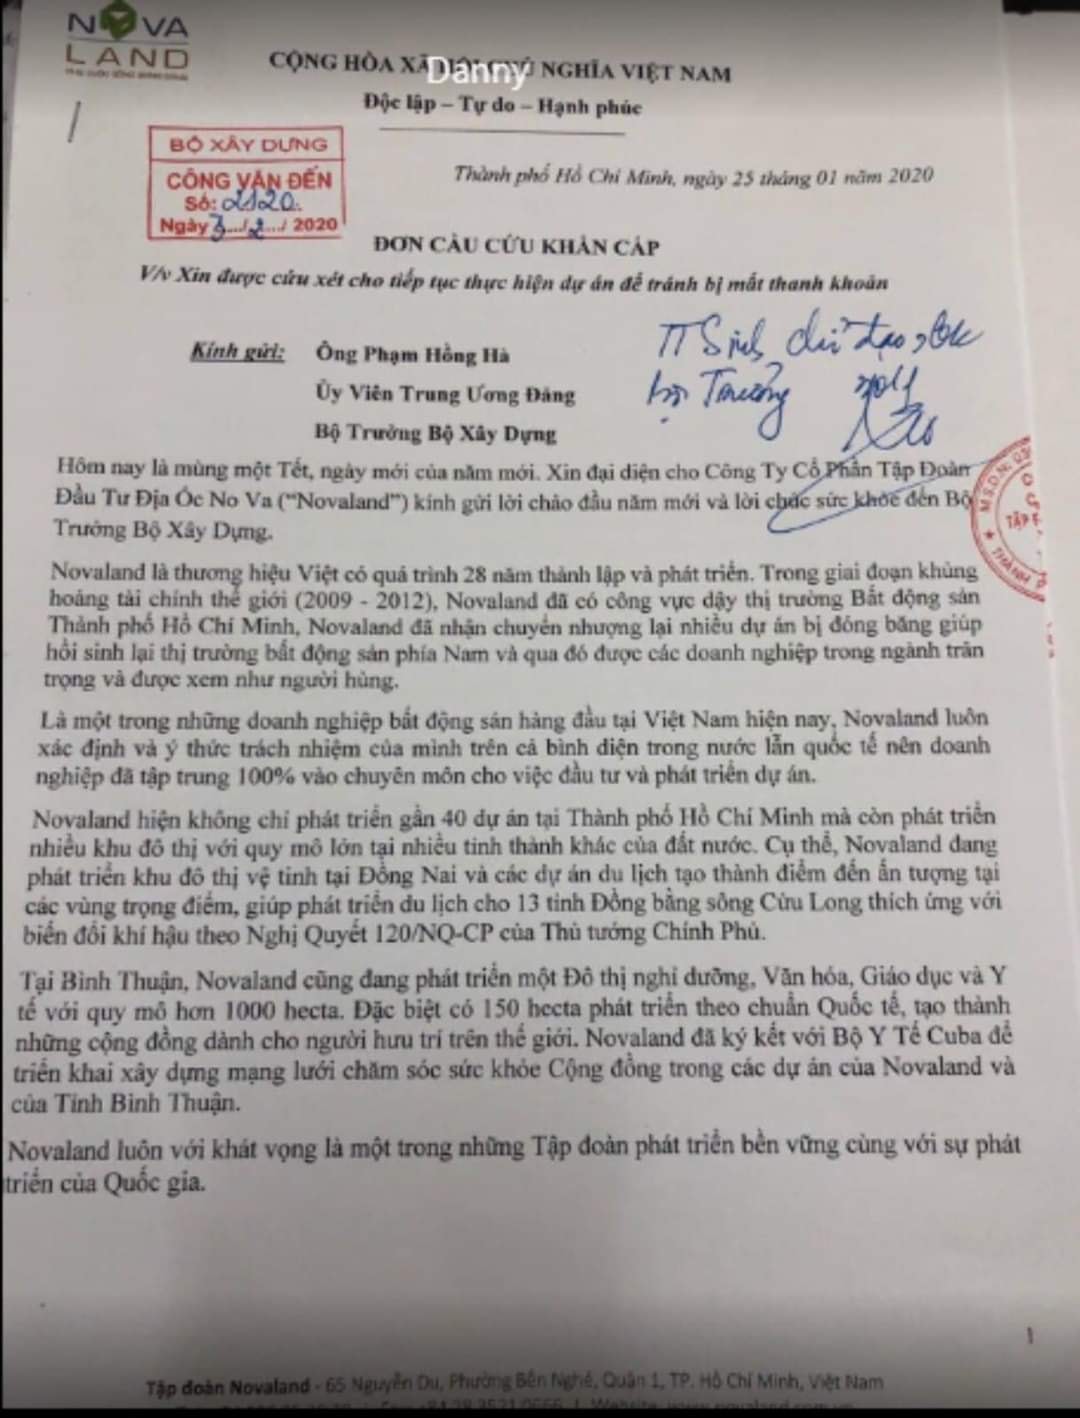 NOVA
LAND
CỘNG HÒA XÃ HỘI CHỦ NGHĨA VIỆT NAM
Danny
Độc lập – Tự do – Hạnh phúc
BỘ XÂY DỰNG
CÔNG VĂN ĐẾN
Số: 2120.
Ngày 3.../2.../ 2020
Thành phố Hồ Chí Minh, ngày 25 tháng 01 năm 2020
ĐƠN CẦU CỨU KHẨN CẤP
V/v Xin được cứu xét cho tiếp tục thực hiện dự án để tránh bị mất thanh khoản
Kính gửi: Ông Phạm Hồng Hà
Ủy Viên Trung Ương Đảng
Bộ Trưởng Bộ Xây Dựng
TT Sinh chỉ đạo
Bộ Trưởng
Hôm nay là mùng một Tết, ngày mới của năm mới. Xin đại diện cho Công Ty Cổ Phần Tập Đoàn
Đầu Tư Địa Ốc No Va (“Novaland”) kính gửi lời chào đầu năm mới và lời chúc sức khỏe đến Bộ
Trưởng Bộ Xây Dựng.
M.S.D.N: 03
TẬP Đ
THÀNH P
Novaland là thương hiệu Việt có quá trình 28 năm thành lập và phát triển. Trong giai đoạn khủng
hoảng tài chính thế giới (2009 - 2012), Novaland đã có công vực dậy thị trường Bất động sản
Thành phố Hồ Chí Minh, Novaland đã nhận chuyển nhượng lại nhiều dự án bị đóng băng giúp
hồi sinh lại thị trường bất động sản phía Nam và qua đó được các doanh nghiệp trong ngành trân
trọng và được xem như người hùng.
Là một trong những doanh nghiệp bất động sản hàng đầu tại Việt Nam hiện nay, Novaland luôn
xác định và ý thức trách nhiệm của mình trên cả bình diện trong nước lẫn quốc tế nên doanh
nghiệp đã tập trung 100% vào chuyên môn cho việc đầu tư và phát triển dự án.
Novaland hiện không chỉ phát triển gần 40 dự án tại Thành phố Hồ Chí Minh mà còn phát triển
nhiều khu đô thị với quy mô lớn tại nhiều tỉnh thành khác của đất nước. Cụ thể, Novaland đang
phát triển khu đô thị vệ tinh tại Đồng Nai và các dự án du lịch tạo thành điểm đến ấn tượng tại
các vùng trọng điểm, giúp phát triển du lịch cho 13 tỉnh Đồng bằng sông Cửu Long thích ứng với
biến đổi khí hậu theo Nghị Quyết 120/NQ-CP của Thủ tướng Chính Phủ.
Tại Bình Thuận, Novaland cũng đang phát triển một Đô thị nghỉ dưỡng, Văn hóa, Giáo dục và Y
tế với quy mô hơn 1000 hecta. Đặc biệt có 150 hecta phát triển theo chuẩn Quốc tế, tạo thành
những cộng đồng dành cho người hưu trí trên thế giới. Novaland đã ký kết với Bộ Y Tế Cuba để
triển khai xây dựng mạng lưới chăm sóc sức khỏe Cộng đồng trong các dự án của Novaland và
của Tỉnh Bình Thuận.
Novaland luôn với khát vọng là một trong những Tập đoàn phát triển bền vững cùng với sự phát
triển của Quốc gia.
1
Tập đoàn Novaland - 65 Nguyễn Du, Phường Bến Nghé, Quận 1, TP. Hồ Chí Minh, Việt Nam